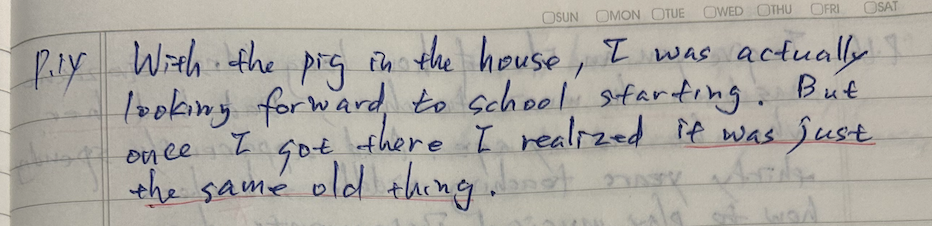 SUN MON TUE WED THU FRI SAT
P.14 With the pig in the house, I was actually
looking forward to school starting. But
once I got there I realized it was just
the same old thing.